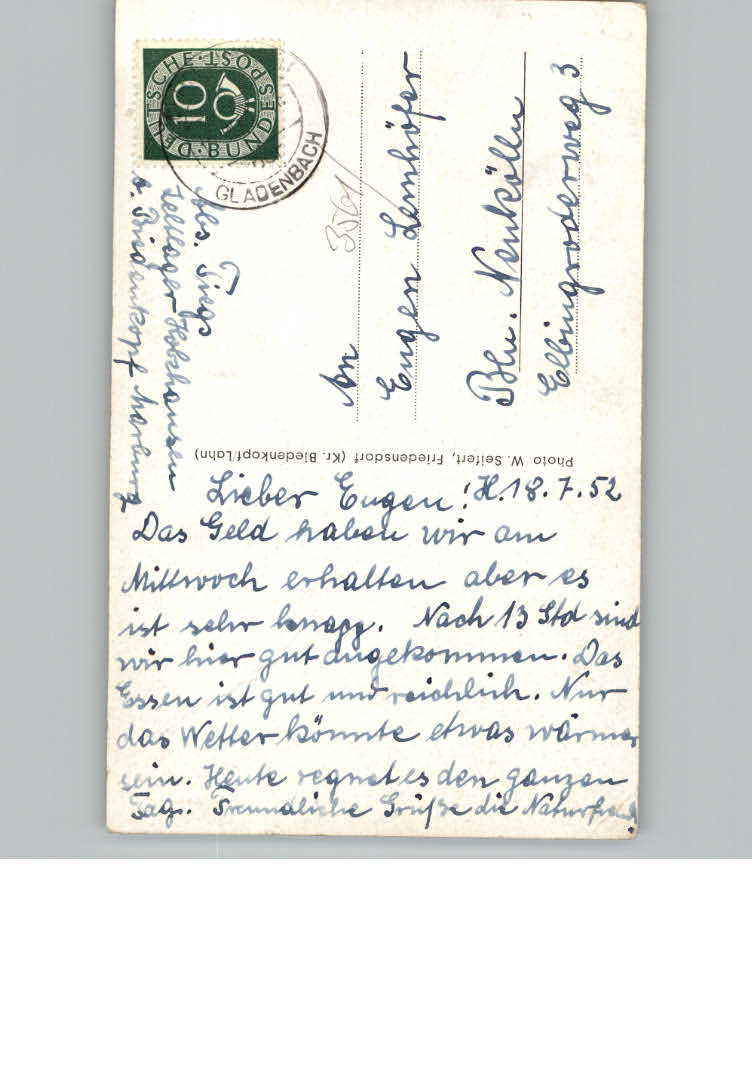 DEUTSCHE BUNDESPOST
10
GLADENBACH
Abs. Tiegs
Zeltlager Holzhausen
b. Biedenkopf Marburg
3561
An
Eugen Lemhöfer
Bln. Neukölln
Elbingroderweg 3
Photo W. Seifert, Friedensdorf (Kr. Biedenkopf/Lahn)
H. 18. 7. 52
Lieber Eugen!
Das Geld haben wir am
Mittwoch erhalten aber es
ist sehr knapp. Nach 13 Std sind
wir hier gut angekommen. Das
Essen ist gut und reichlich. Nur
das Wetter könnte etwas wärmer
sein. Heute regnet es den ganzen
Tag. Freundliche Grüße die